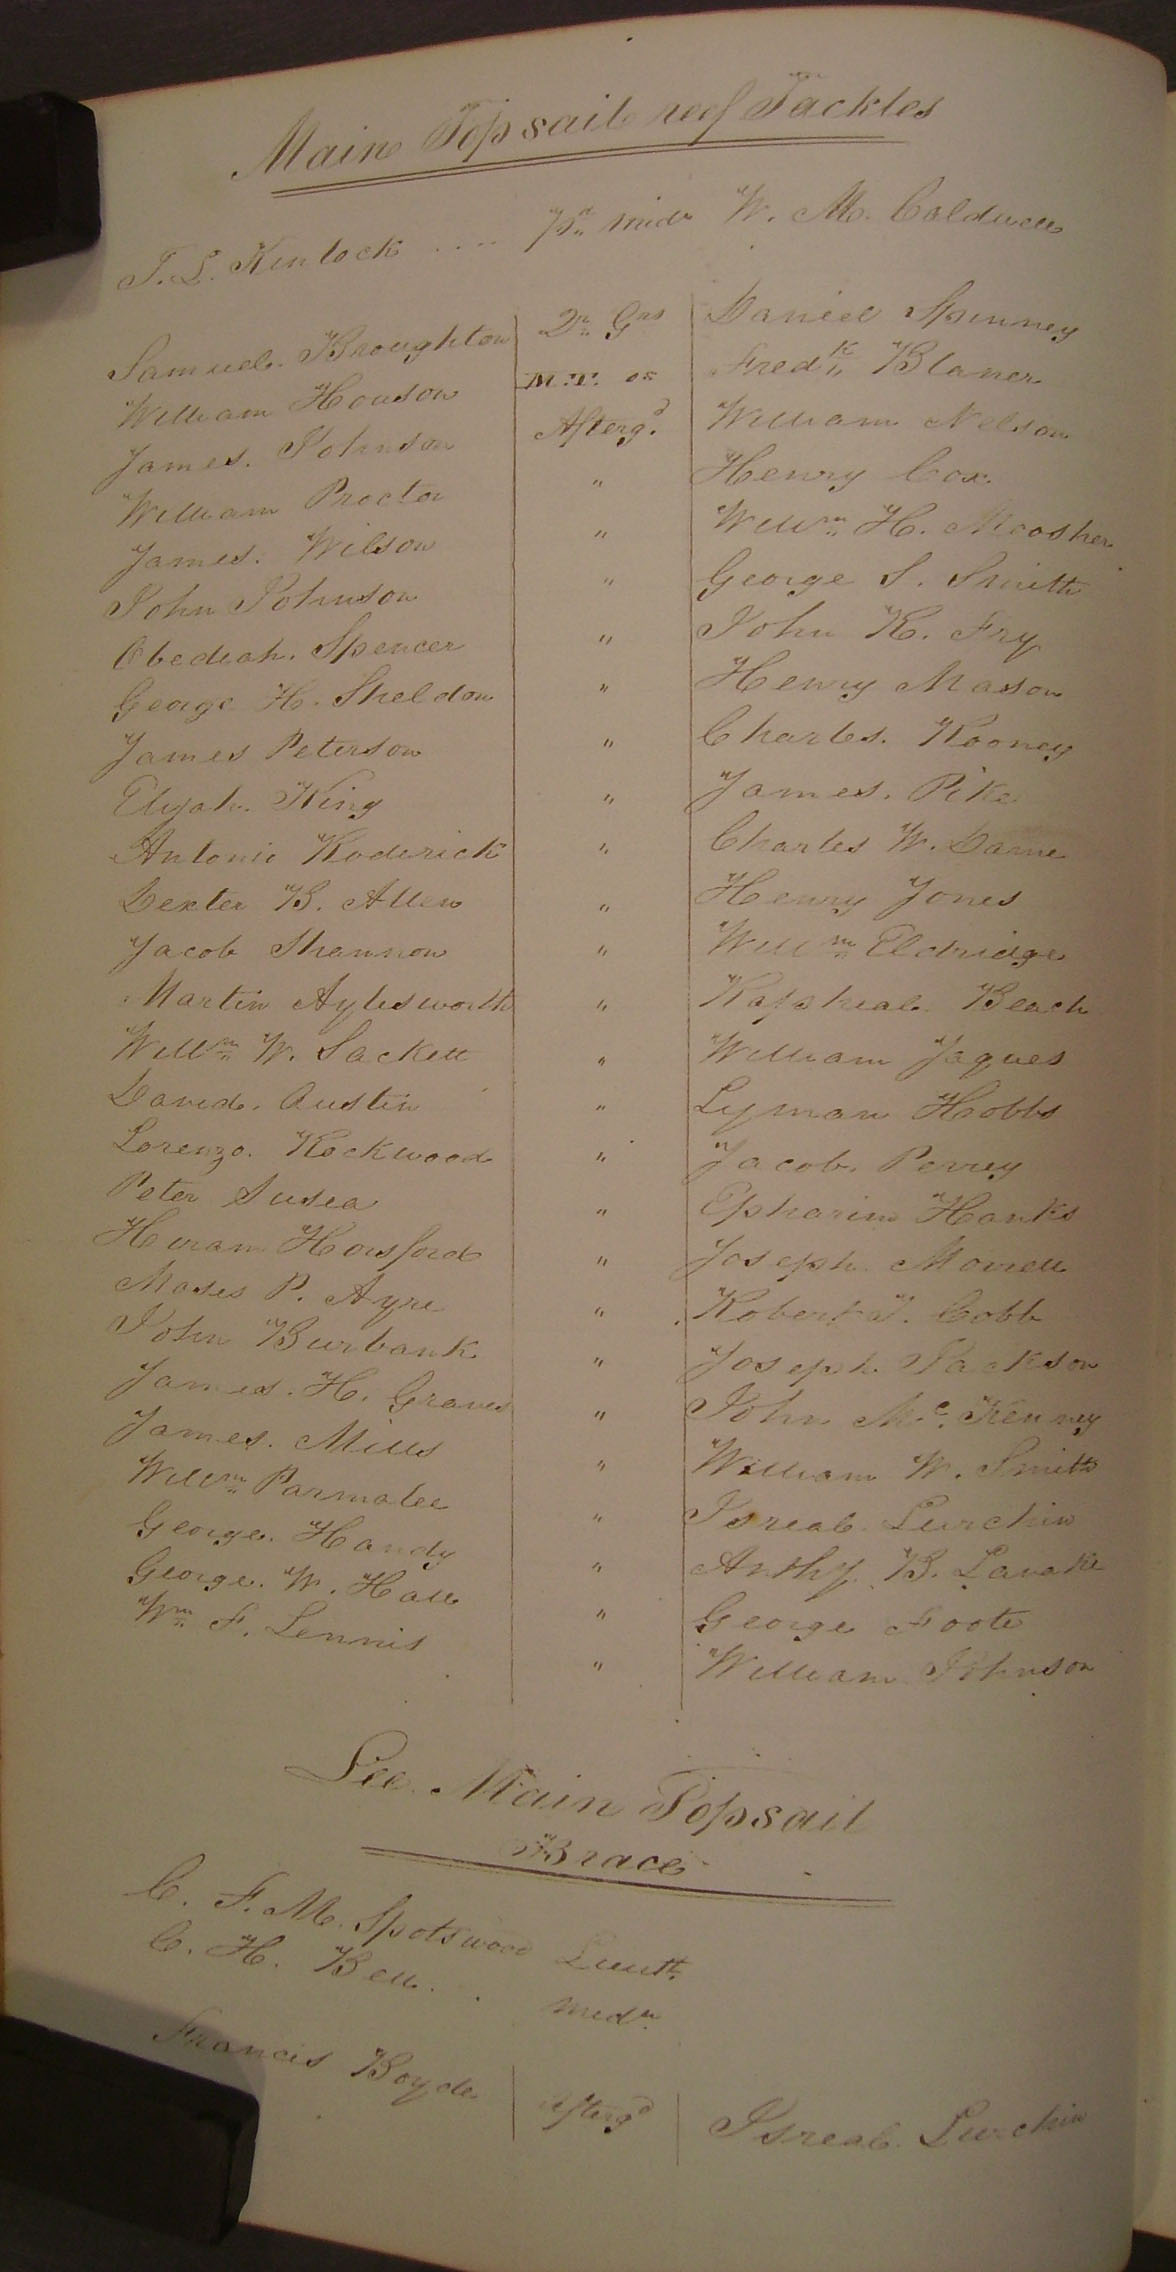 Main Topsail reef Tackles
T. L. Kinlock .... Pd. mid. W. M. Caldwell
Samuel. Broughton Qr. Grs Daniel Spinney
William Houson M.T. Fredk. Blaner
James. Johnson Afterg.d William Nelson
William Proctor " Henry Cox.
James. Wilson " Willm. H. Mcosher
John Johnson " George S. Smith
Obediah. Spencer " John R. Fry
George H. Sheldon " Henry Mason
James Peterson " Charles. Rooney
Elijah. King " James. Pike
Antonio Roderick " Charles W. Dame
Dexter B. Allen " Henry Jones
Jacob Shannon " Willm. Eldridge
Martin Aylesworth " Rapheal Beach
Willm. W. Sackett " William Jaques
David. Austin " Lyman Hobbs
Lorenzo. Rockwood " Jacob. Perrey
Peter Susea " Epharim Hanks
Hiram Horsford " Joseph. Morrell
Moses P. Ayre " Robert T. Cobb
John Burbank " Joseph. Jackson
James. H. Graves " John Mc. Kenney
James. Mills " William W. Smith
Willm. Parmalee " Isreal. Lurchin
George. Handy " Anthy. B. Lavake
George. W. Hall " George Foote
Wm. F. Dennis " William Johnson
Lee. Main Topsail
Brace
C. F. M. Spotswood Lieut.
C. H. Bell . . midn.
Francis Boyde Afterg.d Isreal. Lurchin